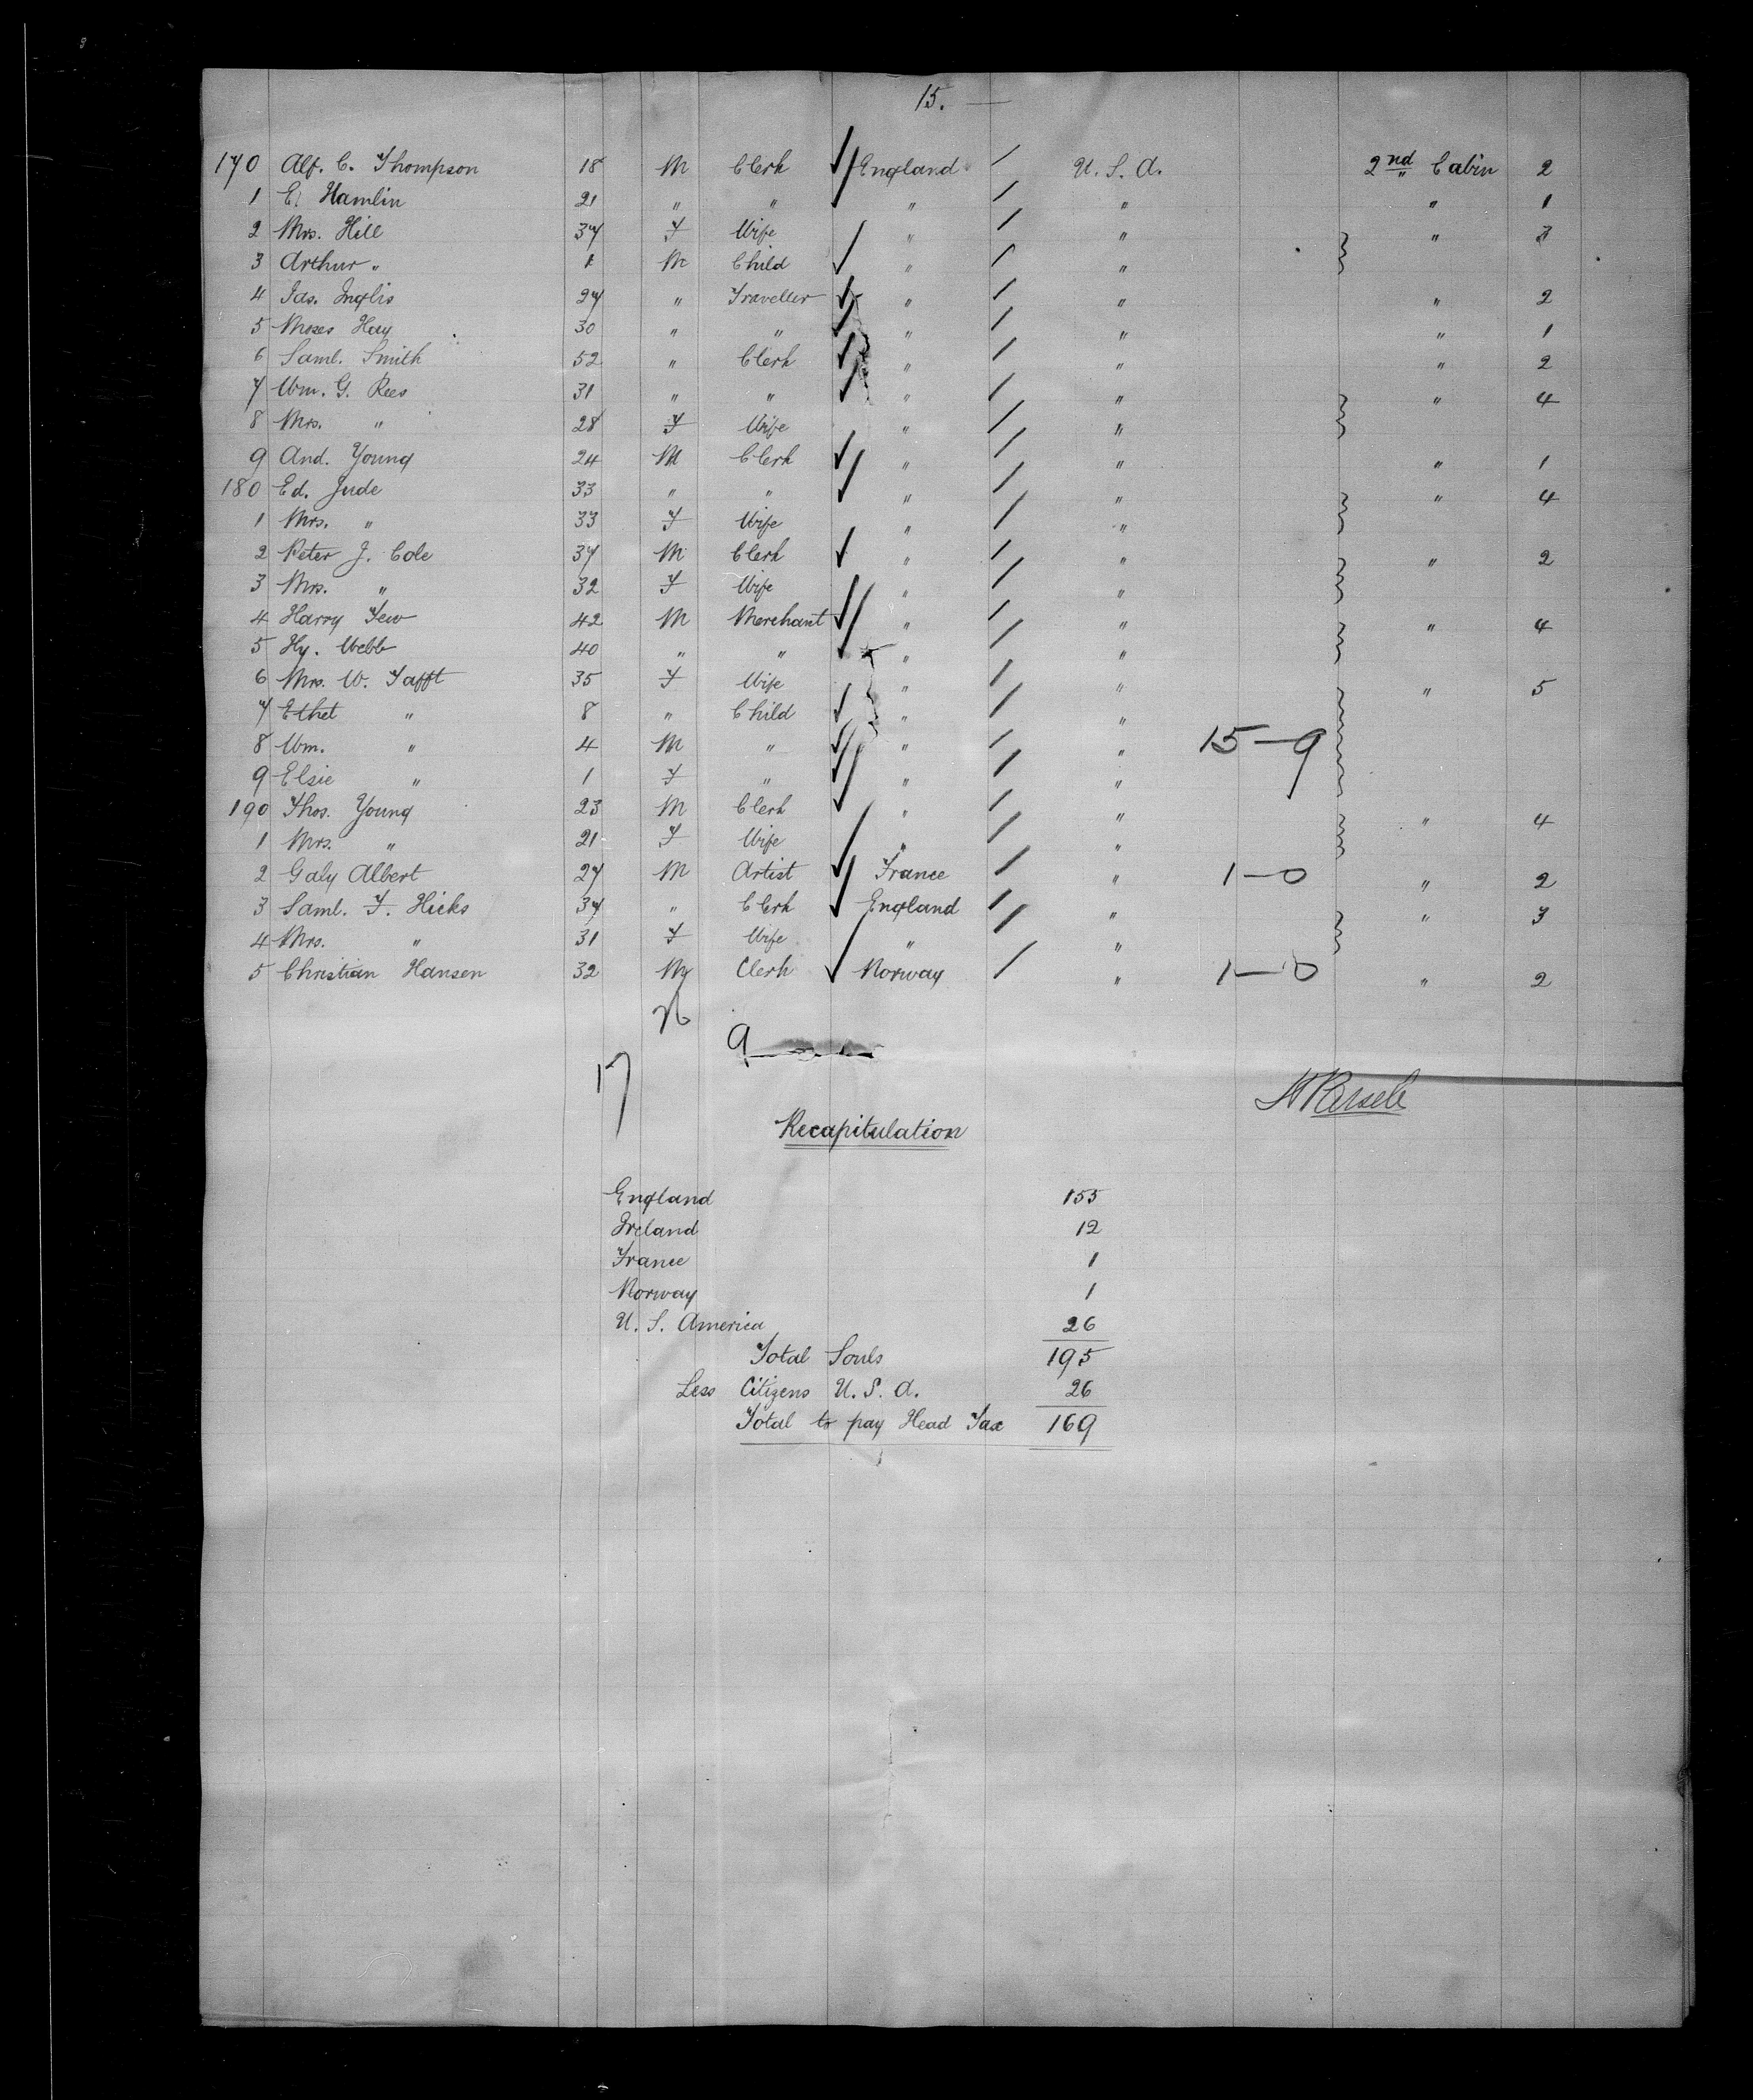 15. —
170 Alf. C. Thompson 18 M Clerk England U. S. A. 2nd Cabin 2
1 E. Hamlin 21 " " " " " 1
2 Mrs. Hill 37 F Wife " " " 3
3 Arthur " 1 M Child " "
4 Jas. Inglis 27 " Traveller " " " 2
5 Moses Hay 30 " " " " " 1
6 Saml. Smith 52 " Clerk " " " 2
7 Wm. G. Rees 31 " " " " " 4
8 Mrs. " 28 F Wife " "
9 And. Young 24 M Clerk " " " 1
180 Ed. Jude 33 " " " " " 4
1 Mrs. " 33 F Wife " "
2 Peter J. Cole 37 M Clerk " " " 2
3 Mrs. " 32 F Wife " "
4 Harry Tew 42 M Merchant " " " 4
5 Hy. Webb 40 " " " "
6 Mrs. W. Tafft 35 F Wife " " " 5
7 Ethel " 8 " Child " "
8 Wm. " 4 M " " " 15-9
9 Elsie " 1 F " " "
190 Thos. Young 23 M Clerk " " " 4
1 Mrs. " 21 F Wife " "
2 Galy Albert 27 M Artist France " 1-0 " 2
3 Saml. F. Hicks 37 " Clerk England " " 3
4 Mrs. " 31 F Wife " "
5 Christian Hansen 32 M Clerk Norway " 1-0 " 2
9
17
Recapitulation
England 155
Ireland 12
France 1
Norway 1
U. S. America 26
Total Souls 195
Less Citizens U. S. A. 26
Total to pay Head Tax 169